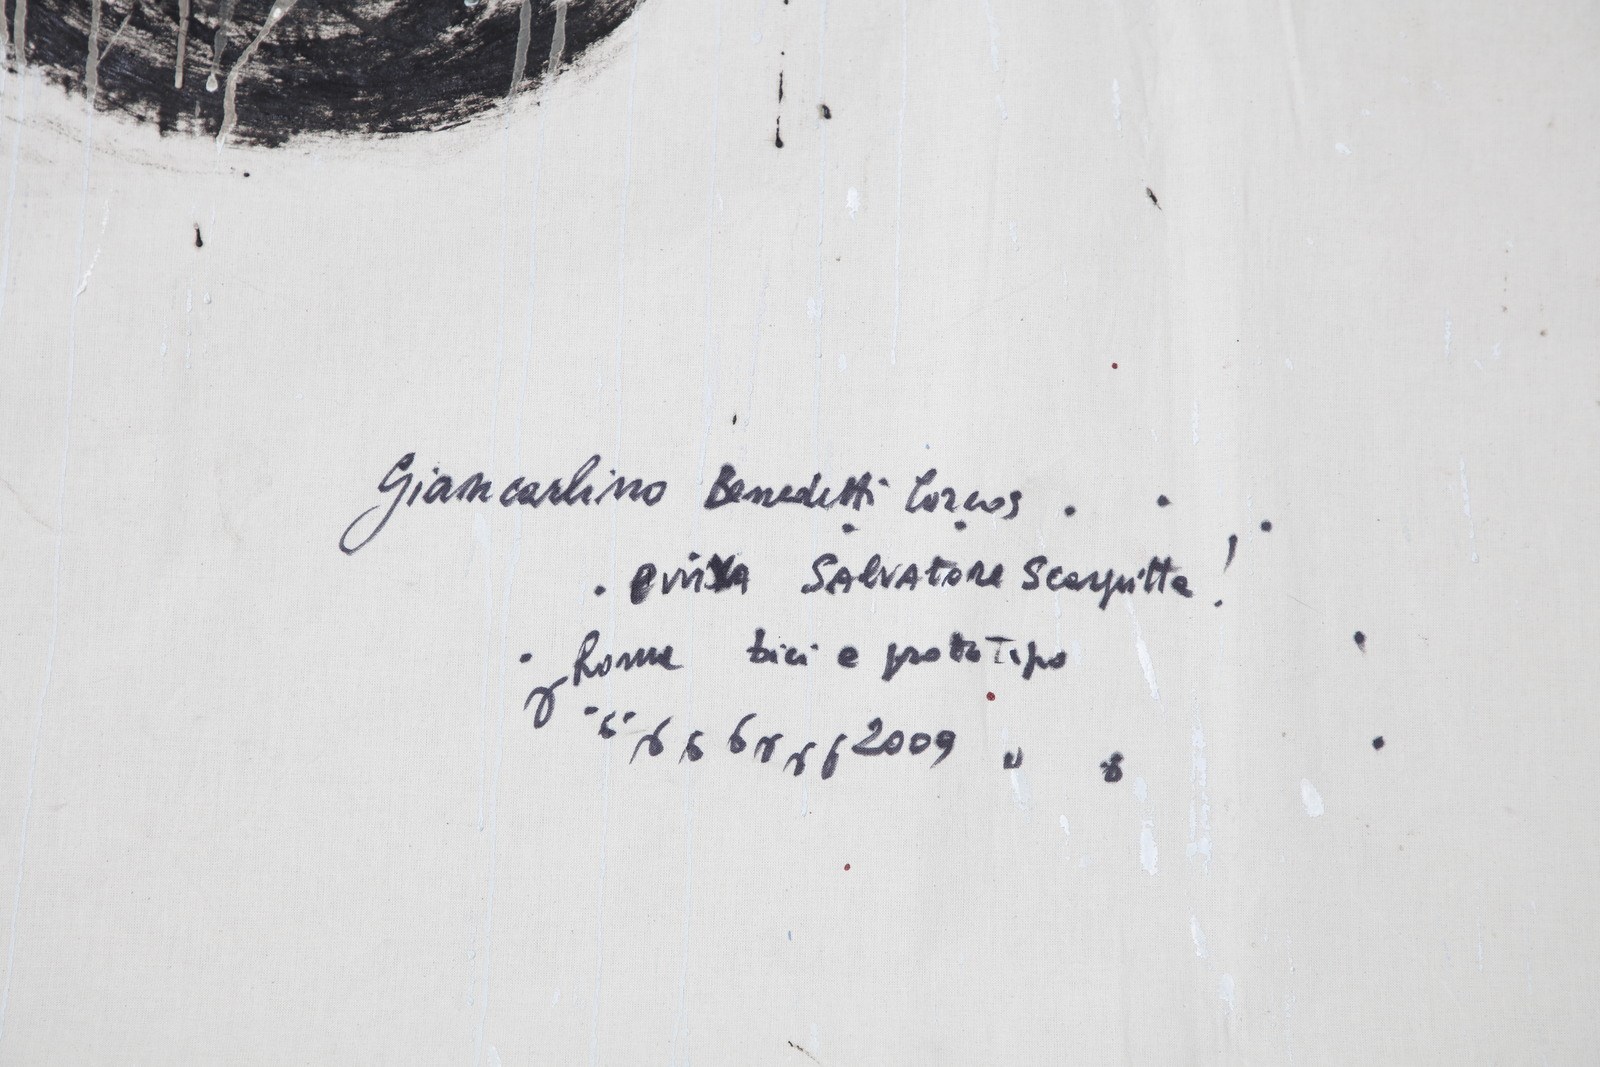 Giancarlino Benedetti Corcos .
. evviva Salvatore Scarpitta!
Roma bici e prototipo
2009